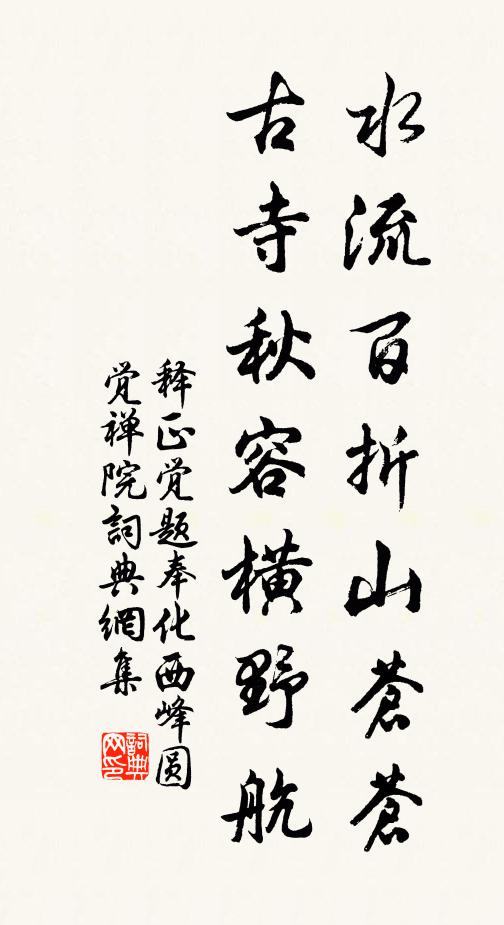 水流百折山蒼蒼
古寺秋容橫野航
释正觉题奉化西峰圆
觉禅院詞典網集
詞典网印